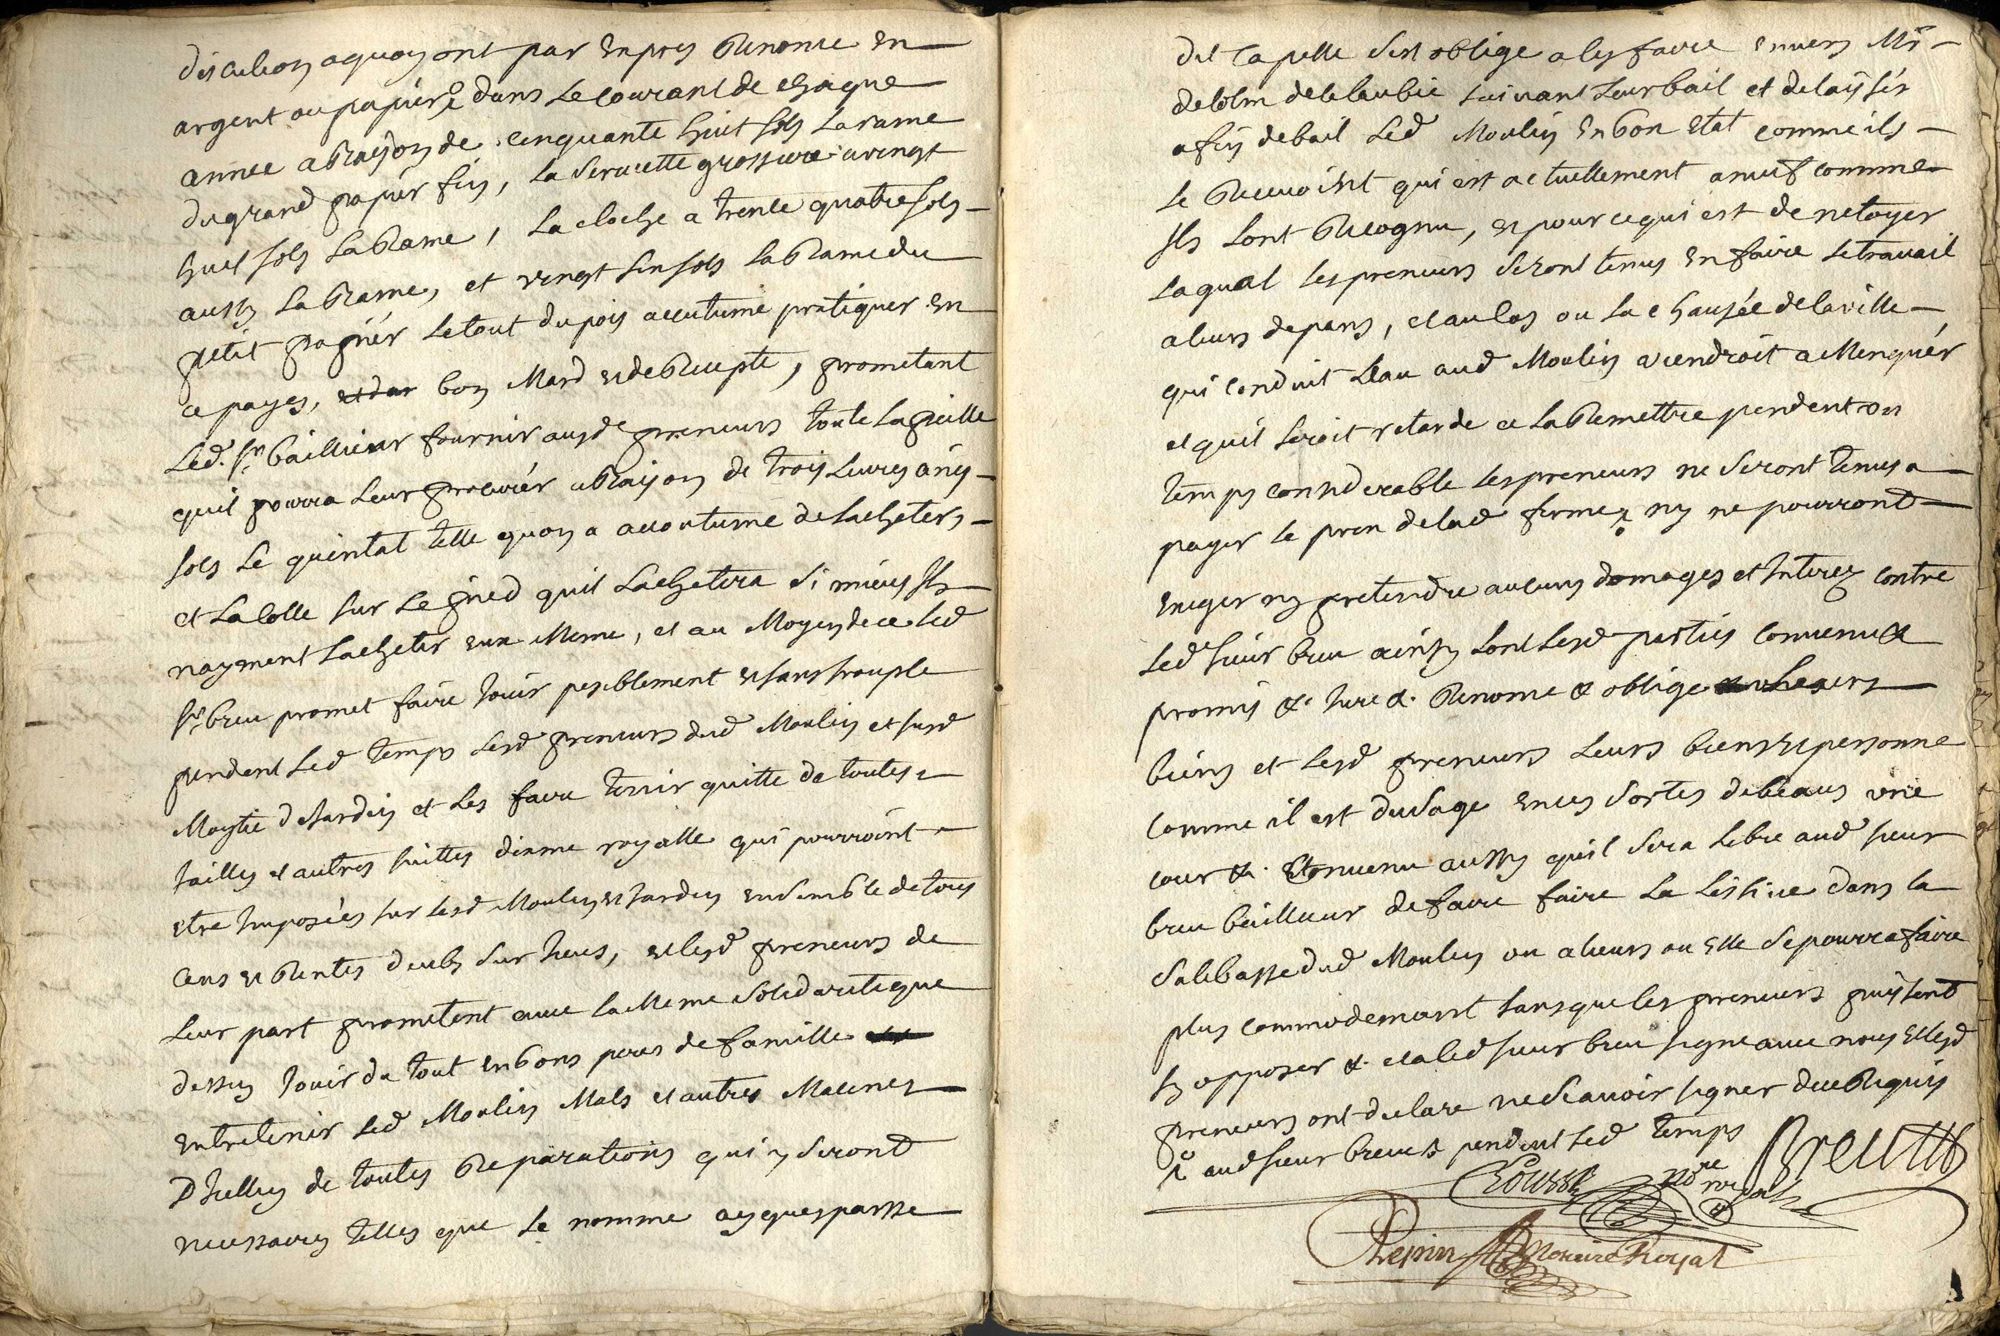 discution aquoy ont par expres Renonce en
argent ou papier dans le courant de chaque
annee a Raison de cinquante huit sols la rame
du grand papier fin, la serviette grossiere a vingt
huit sols la Rame, la cloche a trente quatre sols
aussy la Rame, et vingt sin sols la Rame du
petit papier le tout du pois accutume pratiquer en
ce payes, bon Mard et de Recepte, prometant
Led. Sr bailleur fournir ausd preneurs toute la pielle
quil pourra leur procurer a Raison de trois livres
sols le quintal telle quon a accoutume de lacheters
et la colle sur le pied quil lachetera si mieux Ils
nayment lacheter eux Meme, et au Moyen de ce Led
Sr breu promet faire Jouir pesiblement et sans trouple
pendent Led temps Lesd preneurs dud Moulin et susd
Moytie de Jardin et les faire tenir quitte de toutes
tailles et autres suittes dixme royalle qui pourroint
etre Imposées sur lesd Moulin et Jardin ensemble de tous
cens et Rentes deubs sur Iceux, et lesd preneurs de
Leur part prometent avec la Meme solidarite que
dessus Jouir du tout en bons peres de famille
entretenir Led Moulin Mals et autres Macines
D Icelluy de toutes Reparations qui y seront
necessaires telles que le nomme
dit Capelle sest oblige a les faire envers Mr
delolm delaubie suivant leur bail et delaysser
a fin de bail Led Moulin en bon Etat comme ils
le Recevoint qui est actuellement a neuf comme
Ils sont Recognu, et pour ce qui est de netoyer
laqual les preneurs seront tenus en faire le travail
a leurs depens, et au cas ou la chausée de la ville
qui conduit Leau aud Moulin viendroit a Menquer
et quil seroit retarde a la Remettre pendent un
temps considerable les preneurs ne seront tenus a
payer le prix de lad ferme ny ne pourront
exiger ny pretendre aucuns domages et Interez contre
Led sieur breu ainsy sont Lesd parties convenu &
promis & Jure &. Renonce & oblige ses
biens et Lesd preneurs leurs biens et personne
comme il est dusage en ces sortes de beaus
cour &. Convenu aussy quil sera libre aud sieur
breu bailleur de faire faire la Lessive dans la
sale basse dud Moulin ou alieurs ou Elle se pourra faire
plus commodemant sans que les preneurs puissent
sy opposer &. et a led sieur breu signe avec nous et lesd
preneurs ont declare ne scavoir signer de ce Requis
aud sieur breu pendent Led temps
Breu
Rousset nore royal
Pepin Notaire Royal